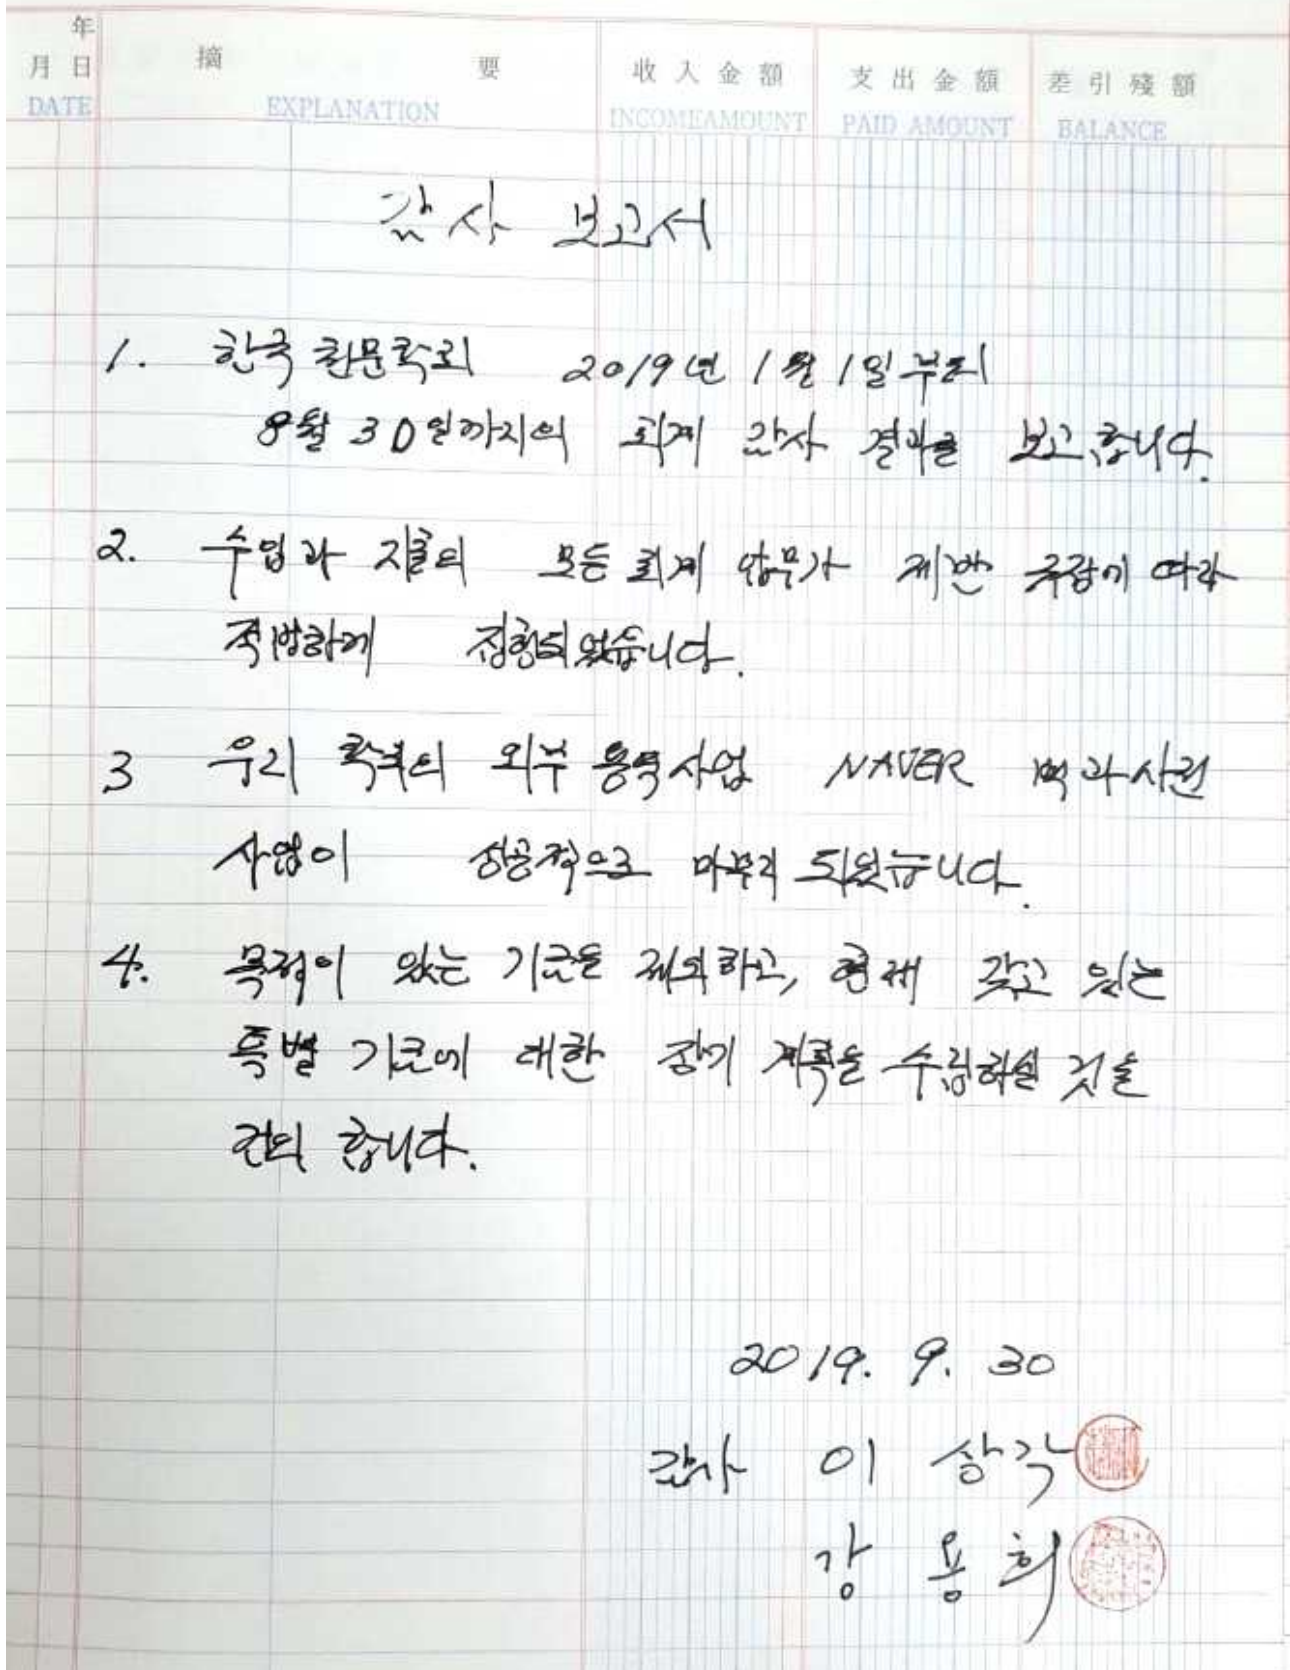 年
月 日 摘 要 收入金額 支出金額 差引殘額
DATE EXPLANATION INCOMEAMOUNT PAID AMOUNT BALANCE
감사 보고서
1. 한국환문학회 2019년 1월 1일부터
8월 30일까지의 회계 감사 결과를 보고합니다.
2. 수입과 지출의 모든 회계 업무가 제반 규정에 따라
적법하게 집행되었습니다.
3 우리 학회의 외부 용역사업 NAVER 백과사전
사업이 성공적으로 마무리 되었습니다.
4. 목적이 있는 기금을 제외하고, 현재 갖고 있는
특별 기금에 대한 장기 계획을 수립하실 것을
건의 합니다.
2019. 9. 30
감사 이 상각
강 용 희